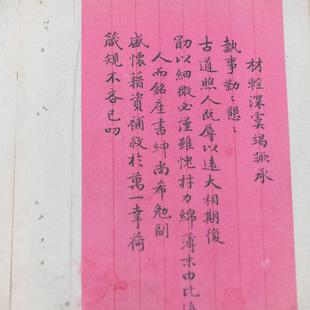 材輇深虞竭蹶承
執事勤：懇：
古道照人既辱以遠大相期復
勖以細微必謹雖愧材力綿薄末由比
人而銘座書紳尚希勉副
盛懷藉資補救於萬一幸荷
箴規不吝已叨